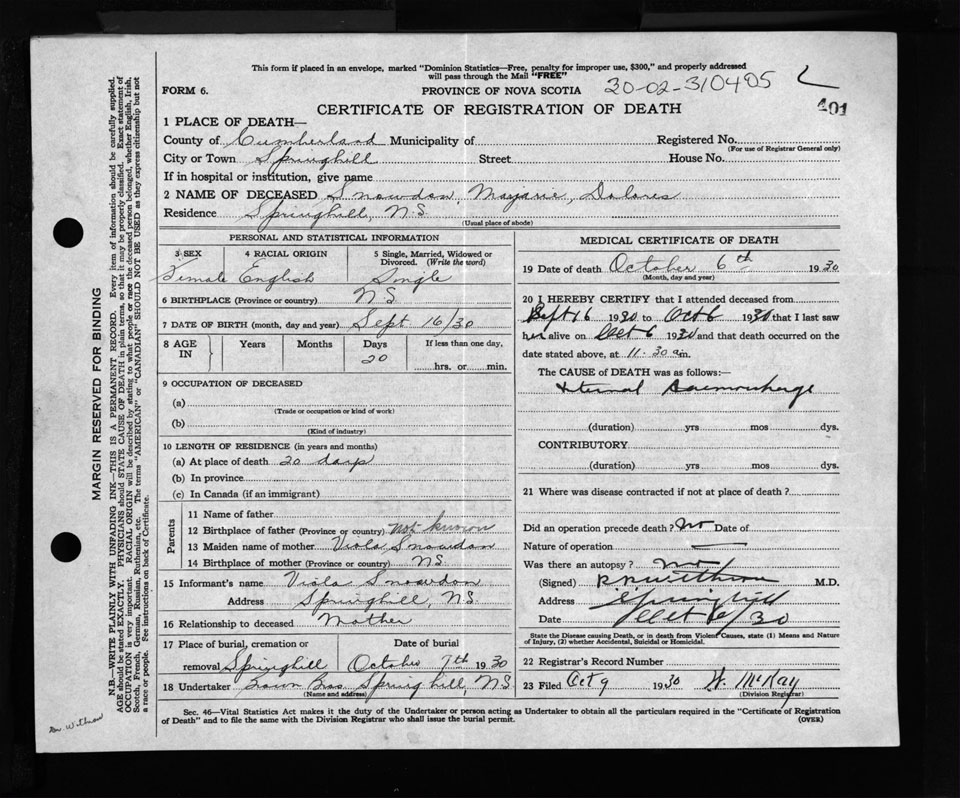 This form if placed in an envelope, marked "Dominion Statistics—Free, penalty for improper use, $300," and properly addressed
will pass through the Mail "FREE"
FORM 6. PROVINCE OF NOVA SCOTIA 30-02-310405
401
CERTIFICATE OF REGISTRATION OF DEATH
1 PLACE OF DEATH—
County of Cumberland Municipality of Registered No.
(For use of Registrar General only)
City or Town Springhill Street House No.
If in hospital or institution, give name
2 NAME OF DECEASED Snowdon, Marjarie, Dolores
Residence Springhill, N.S.
(Usual place of abode)
PERSONAL AND STATISTICAL INFORMATION
3 SEX 4 RACIAL ORIGIN 5 Single, Married, Widowed or
Divorced. (Write the word)
Female English Single
6 BIRTHPLACE (Province or country) N.S.
7 DATE OF BIRTH (month, day and year) Sept 16/30
8 AGE IN Years Months Days If less than one day,
20 hrs. or min.
9 OCCUPATION OF DECEASED
(a)
(Trade or occupation or kind of work)
(b)
(Kind of industry)
10 LENGTH OF RESIDENCE (in years and months)
(a) At place of death 20 days
(b) In province
(c) In Canada (if an immigrant)
Parents
11 Name of father
12 Birthplace of father (Province or country) not known
13 Maiden name of mother Viola Snowdon
14 Birthplace of mother (Province or country) N.S.
15 Informant's name Viola Snowdon
Address Springhill, N.S.
16 Relationship to deceased Mother
17 Place of burial, cremation or Date of burial
removal Springhill October 7th 1930
18 Undertaker Brown Bros Springhill, N.S.
(Name and address)
MEDICAL CERTIFICATE OF DEATH
19 Date of death October 6th 1930
(Month, day and year)
20 I HEREBY CERTIFY that I attended deceased from
Sept 16 1930 to Oct 6 1930 that I last saw
her alive on Oct 6 1930 and that death occurred on the
date stated above, at 11.30 a.m.
The CAUSE of DEATH was as follows:—
Internal Haemorrhage
(duration) yrs mos dys.
CONTRIBUTORY
(duration) yrs mos dys.
21 Where was disease contracted if not at place of death?
Did an operation precede death? No Date of
Nature of operation —
Was there an autopsy? No
(Signed) Withrow M.D.
Address Springhill
Date Oct 6/30
State the Disease causing Death, or in death from Violent Causes, state (1) Means and Nature
of Injury, (2) whether Accidental, Suicidal or Homicidal.
22 Registrar's Record Number
23 Filed Oct 9 1930 W. McKay
(Division Registrar)
Sec. 46—Vital Statistics Act makes it the duty of the Undertaker or person acting as Undertaker to obtain all the particulars required in the "Certificate of Registration
of Death" and to file the same with the Division Registrar who shall issue the burial permit.
(OVER)
MARGIN RESERVED FOR BINDING
N.B.—WRITE PLAINLY WITH UNFADING INK—THIS IS A PERMANENT RECORD. Every item of information should be carefully supplied.
AGE should be stated EXACTLY. PHYSICIANS should STATE CAUSE OF DEATH in plain terms, so that it may be properly classified. Exact statement of
OCCUPATION is very important. RACIAL ORIGIN will be described by stating to what people or race the deceased person belonged, whether English, Irish,
Scotch, French, German, Russian, Ruthenian, etc. The terms "AMERICAN" or "CANADIAN" SHOULD NOT BE USED as they express citizenship but not
a race or people. See instructions on back of Certificate.
Dr. Withrow